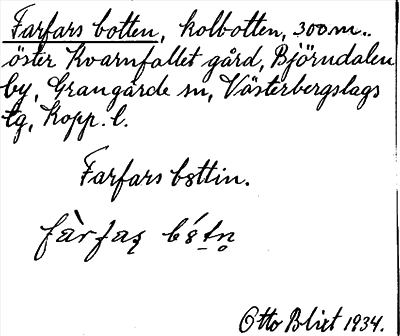 Farfars botten, kolbotten, 300 m..
öster Kvarnfallet gård, Björndalen
by, Grangärde sn, Västerbergslags
tg, Kopp. l.
Farfars bottin.
Otto Blixt 1934.